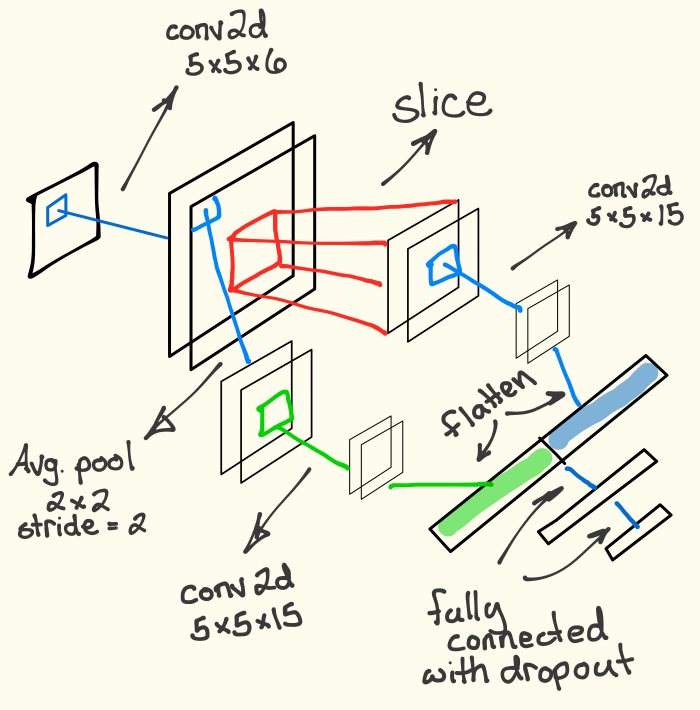 conv2d
5x5x6
slice
conv2d
5x5x15
flatten
Avg. pool
2x2
stride = 2
conv2d
5x5x15
fully
connected
with dropout